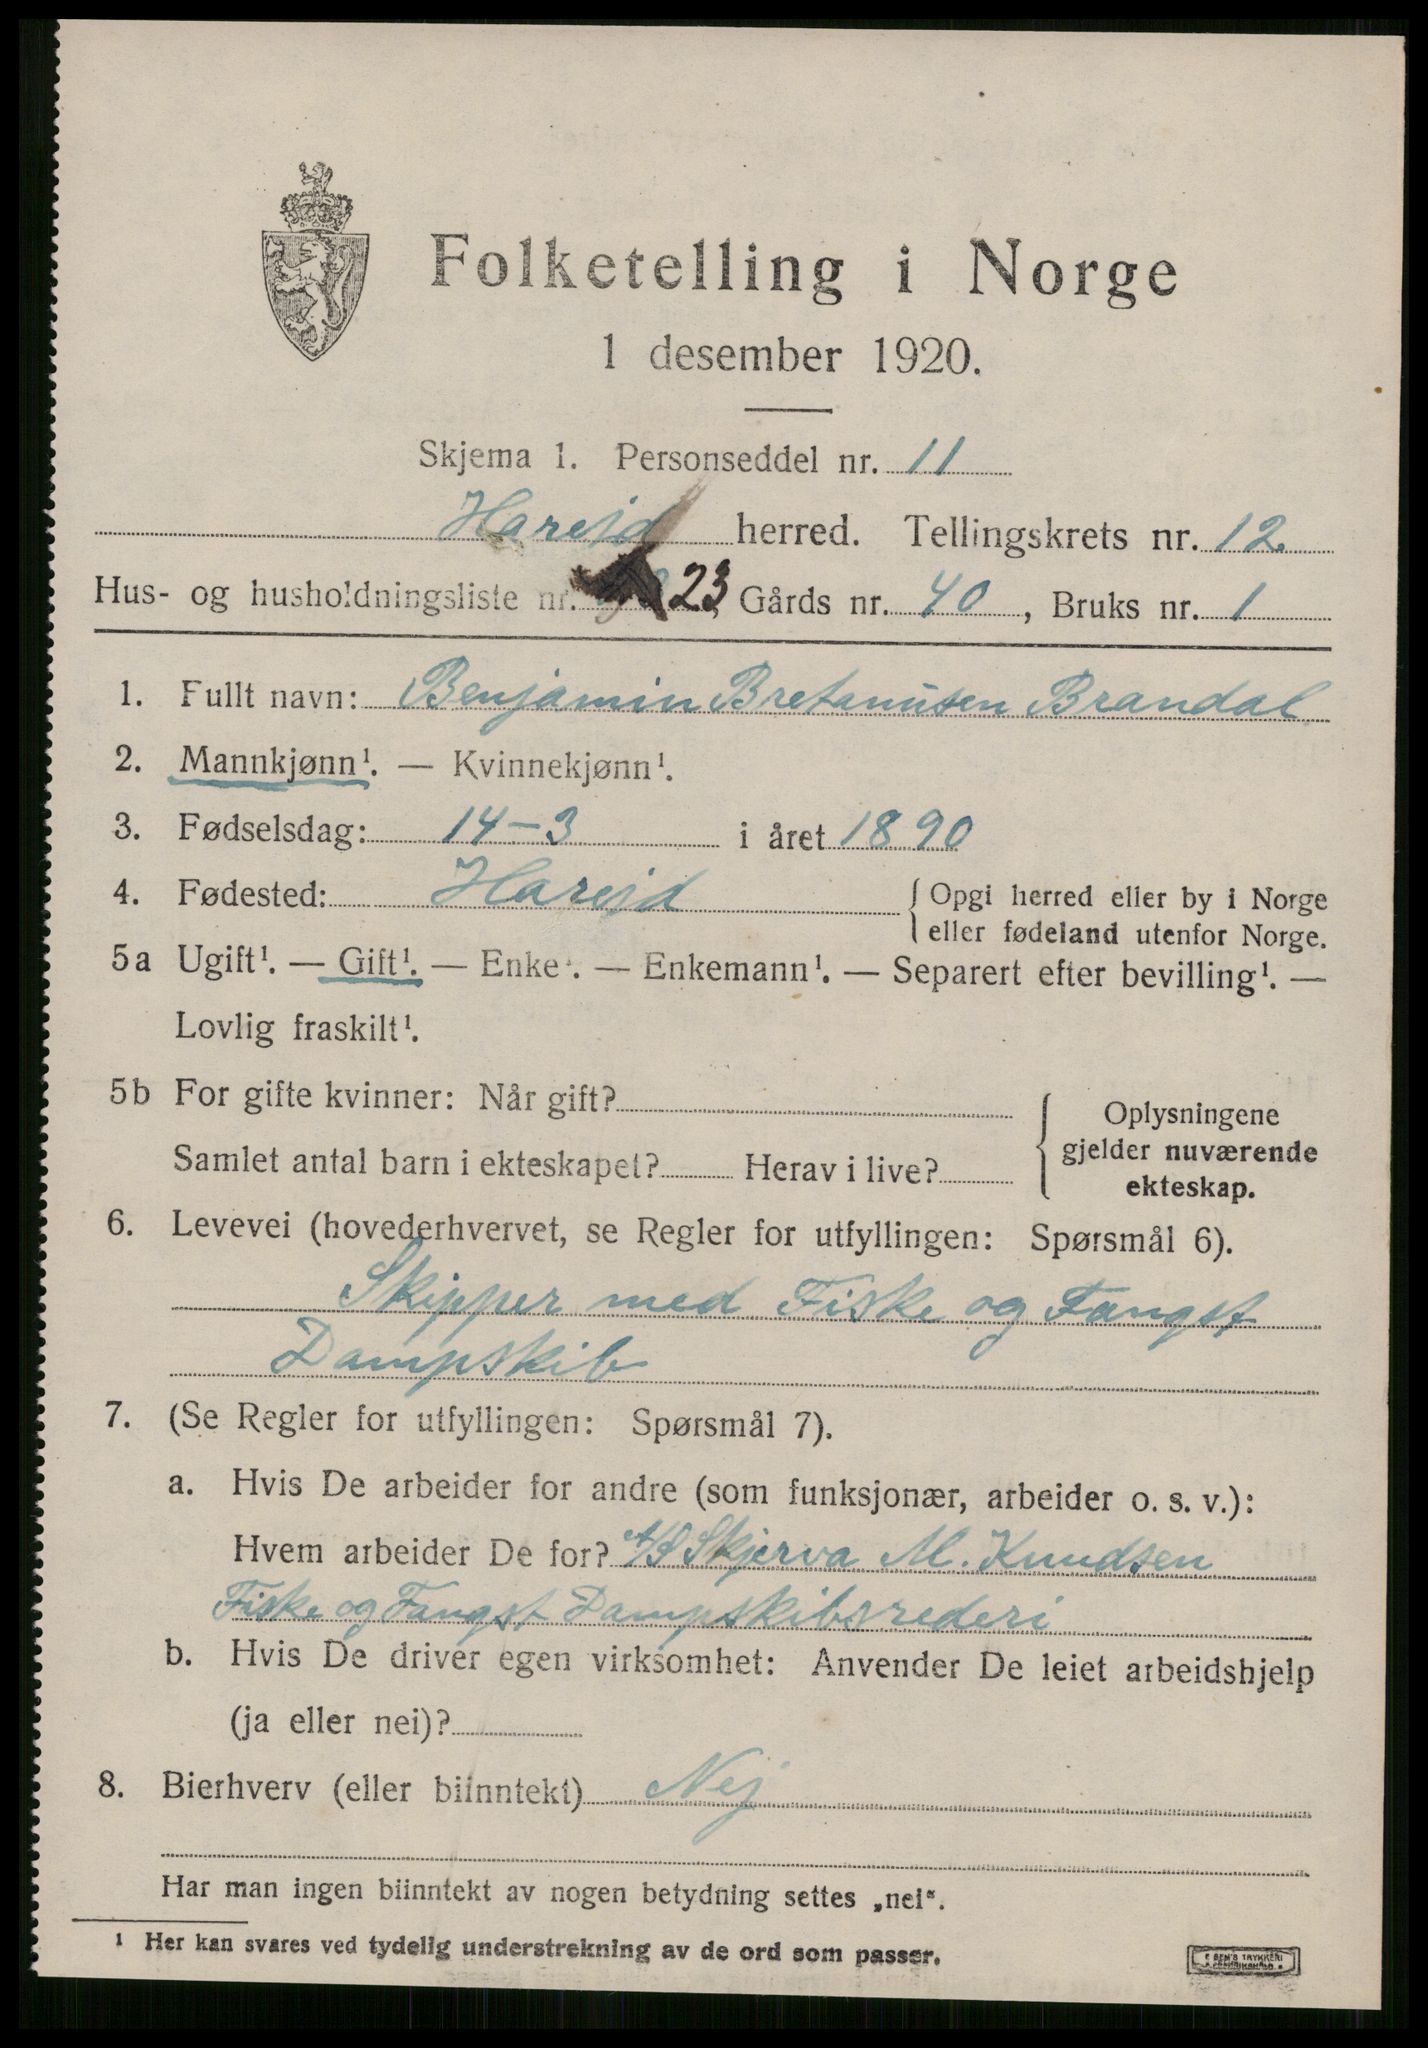 Folketelling i Norge
1 desember 1920.
Skjema 1. Personseddel nr. 11
Hareid herred. Tellingskrets nr. 12.
Hus- og husholdningsliste nr. 23, Gårds nr. 40, Bruks nr. 1
1. Fullt navn: Benjamin Bretanusen Brandal
2. Mannkjønn¹. — Kvinnekjønn¹.
3. Fødselsdag: 14-3 i året 1890
4. Fødested: Hareid { Opgi herred eller by i Norge
eller fødeland utenfor Norge.
5a Ugift¹. — Gift¹. — Enke¹. — Enkemann¹. — Separert efter bevilling¹. —
Lovlig fraskilt¹.
5b For gifte kvinner: Når gift?
Samlet antal barn i ekteskapet? Herav i live?
Oplysningene
gjelder nuværende
ekteskap.
6. Levevei (hovederhvervet, se Regler for utfyllingen: Spørsmål 6).
Skipper med Fiske og Fangst
Dampskib
7. (Se Regler for utfyllingen: Spørsmål 7).
a. Hvis De arbeider for andre (som funksjonær, arbeider o. s. v.):
Hvem arbeider De for? A/S Skjerva M. Knudsen
Fiske og Fangst Dampskibsrederi
b. Hvis De driver egen virksomhet: Anvender De leiet arbeidshjelp
(ja eller nei)?
8. Bierhverv (eller biinntekt) Nej
Har man ingen biinntekt av nogen betydning settes „nei“.
¹ Her kan svares ved tydelig understrekning av de ord som passer.